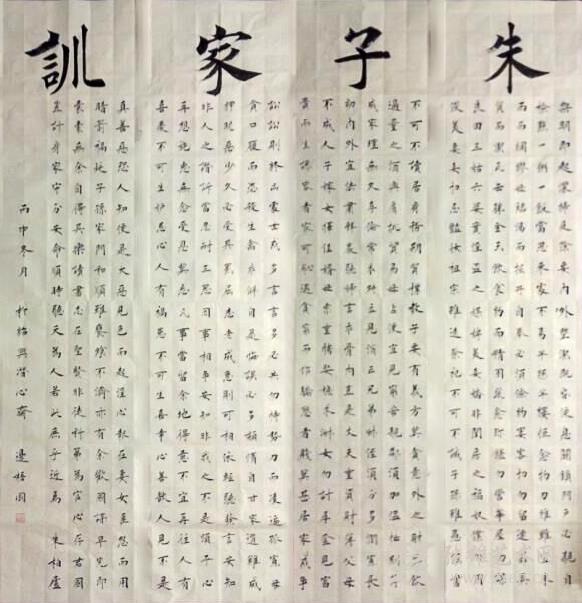 朱子家訓
黎明即起灑掃庭除要內外整潔既昏便息關鎖門戶必親自
檢點一粥一飯當思來處不易半絲半縷恒念物力維艱宜未
雨而綢繆毋臨渴而掘井自奉必須儉約宴客切勿留連器具
質而潔瓦缶勝金玉飲食約而精園蔬愈珍饈勿營華屋勿謀
良田三姑六婆實淫盜之媒婢美妾嬌非閨房之福奴僕勿用
俊美妻妾切忌豔妝祖宗雖遠祭祀不可不誠子孫雖愚經書
不可不讀居身務期質樸教子要有義方莫貪意外之財莫飲
過量之酒與肩挑貿易毋占便宜見窮苦親鄰須加溫恤刻薄
成家理無久享倫常乖舛立見消亡兄弟叔侄須分多潤寡長
幼內外宜法肅辭嚴聽婦言乖骨肉豈是丈夫重資財薄父母
不成人子嫁女擇佳婿毋索重聘娶媳求淑女勿計厚奩見富
貴而生諂容者最可恥遇貧窮而作驕態者賤莫甚居家戒爭
訟訟則終凶處世戒多言言多必失勿恃勢力而凌逼孤寡毋
貪口腹而恣殺生禽乖僻自是悔誤必多頹惰自甘家道難成
狎昵惡少久必受其累屈志老成急則可相依輕聽發言安知
非人之譖訴當忍耐三思因事相爭安知非我之不是須平心
再想施惠無念受恩莫忘凡事當留餘地得意不宜再往人有
喜慶不可生妒忌心人有禍患不可生喜幸心善欲人見不是
真善惡恐人知便是大惡見色而起淫心報在妻女匿怨而用
暗箭禍延子孫家門和順雖饔飧不濟亦有餘歡國課早完即
囊橐無餘自得其樂讀書志在聖賢非徒科第為官心存君國
豈計身家守分安命順時聽天為人若此庶乎近焉 朱柏廬
丙申冬月